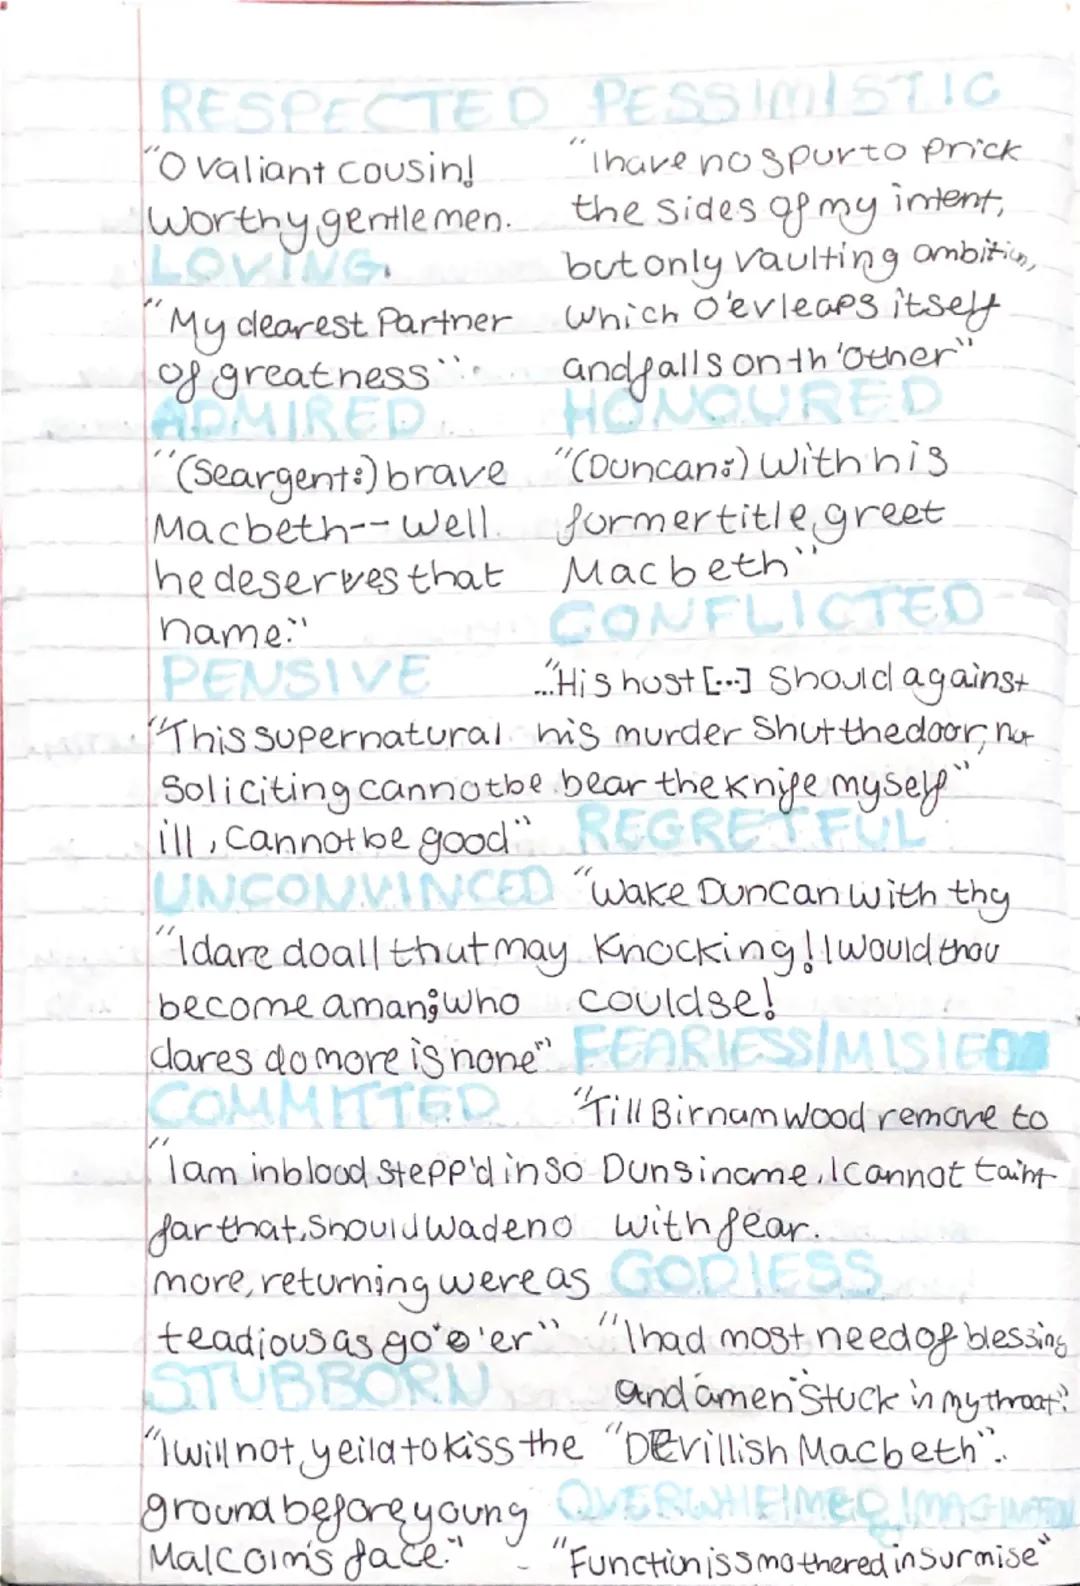 RESPECTED
"O valiant cousin!
Worthy gentlemen.
LOVING
"My dearest Partner
of greatness"
ADMIRED
"(Seargent:) brave
Macbeth-- Well
he deserves that
name."
PENSIVE
"This supernatural
Soliciting cannot be
ill, cannot be good"
UNCONVINCED
"I dare do all that may
become a man; who
dares do more is none"
COMMITTED
"I am in blood stepp'd in so
far that, should wade no
more, returning were as
teadious as go o'er"
STUBBORN
"I will not yeild to kiss the
ground before young
Malcolm's face."
PESSIMISTIC
"I have no spur to prick
the sides of my intent,
but only vaulting ambition,
which O'evleaps itself
and falls on th'other"
HONOURED
"(Duncan:) With his
former title, greet
Macbeth"
CONFLICTED
..."His host [...] Should against
his murder Shut the door, nor
bear the knife myself"
REGRETFUL
"Wake Duncan with thy
Knocking! I would thou
couldse!
FEARlESS/MISlED
"Till Birnam Wood remove to
Dunsiname, I cannot taint
with fear.
GODlESS
"I had most need of blessing
and 'amen' Stuck in my throat"
"DEvillish Macbeth".
OVERWHElMED IMAGINATION
"Function is smothered in surmise"